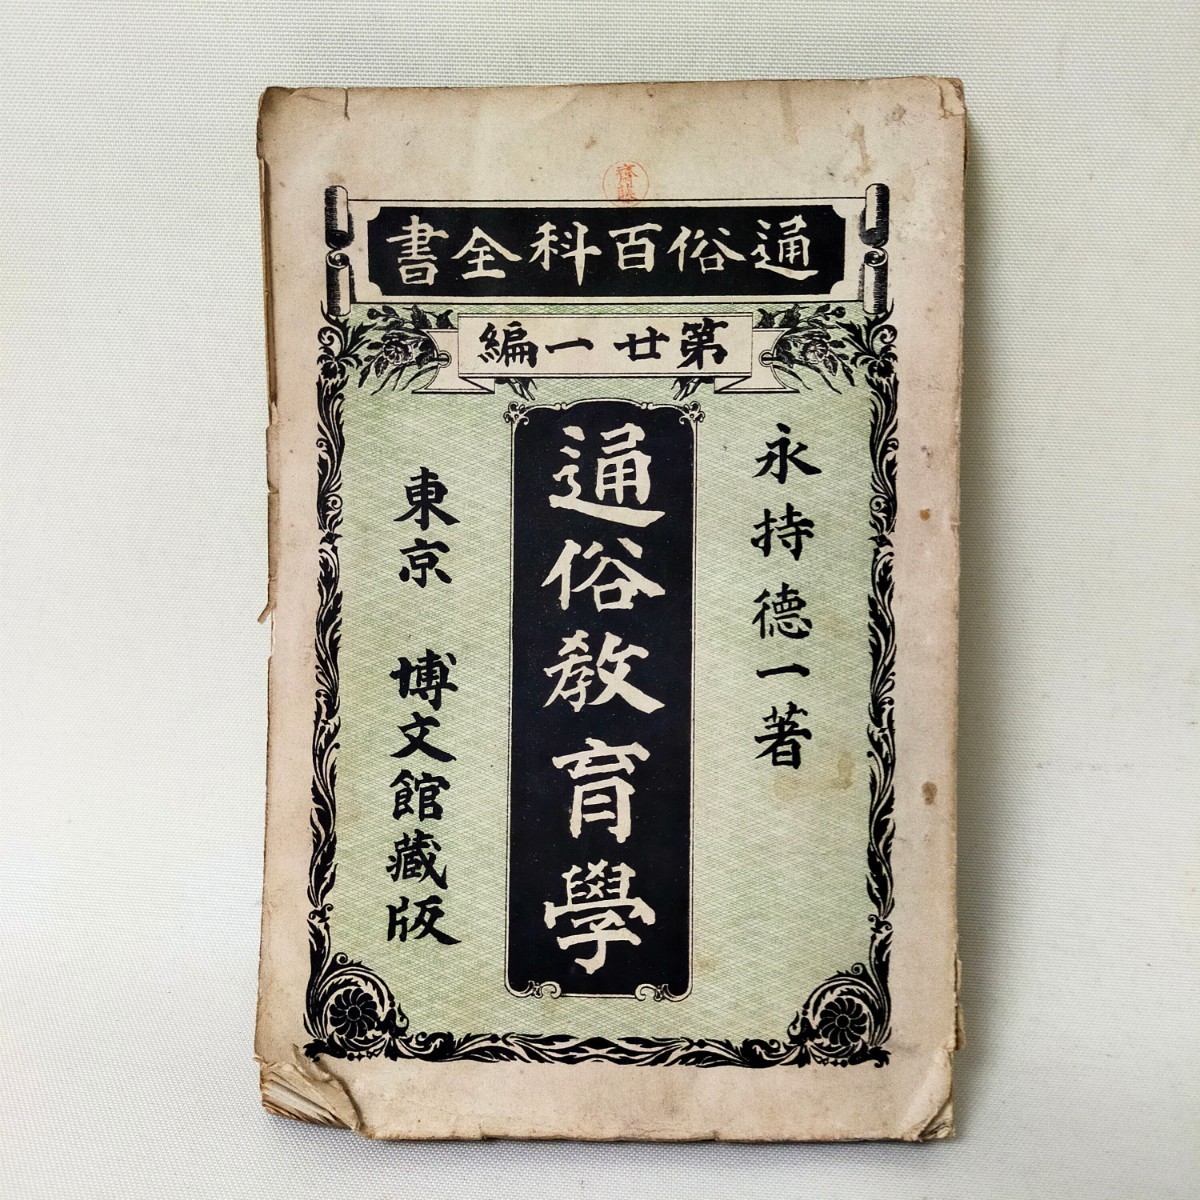 齋藤
通俗百科全書
第廿一編
永持德一著
通俗敎育學
東京 博文館藏版